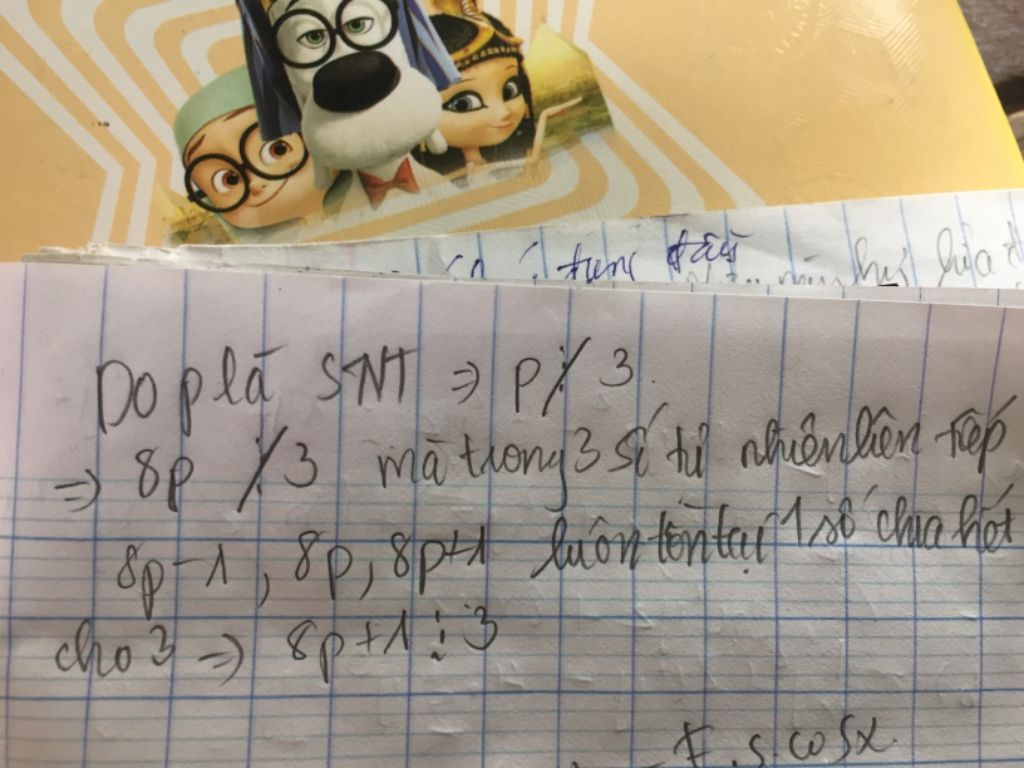 từng đầu
lúa
Do p là SNT => p ⋮̸ 3.
=> 8p ⋮̸ 3 mà trong 3 số tự nhiên liên tiếp
8p-1, 8p, 8p+1 luôn tồn tại 1 số chia hết
cho 3 => 8p+1 ⋮ 3
F.s.cosx.